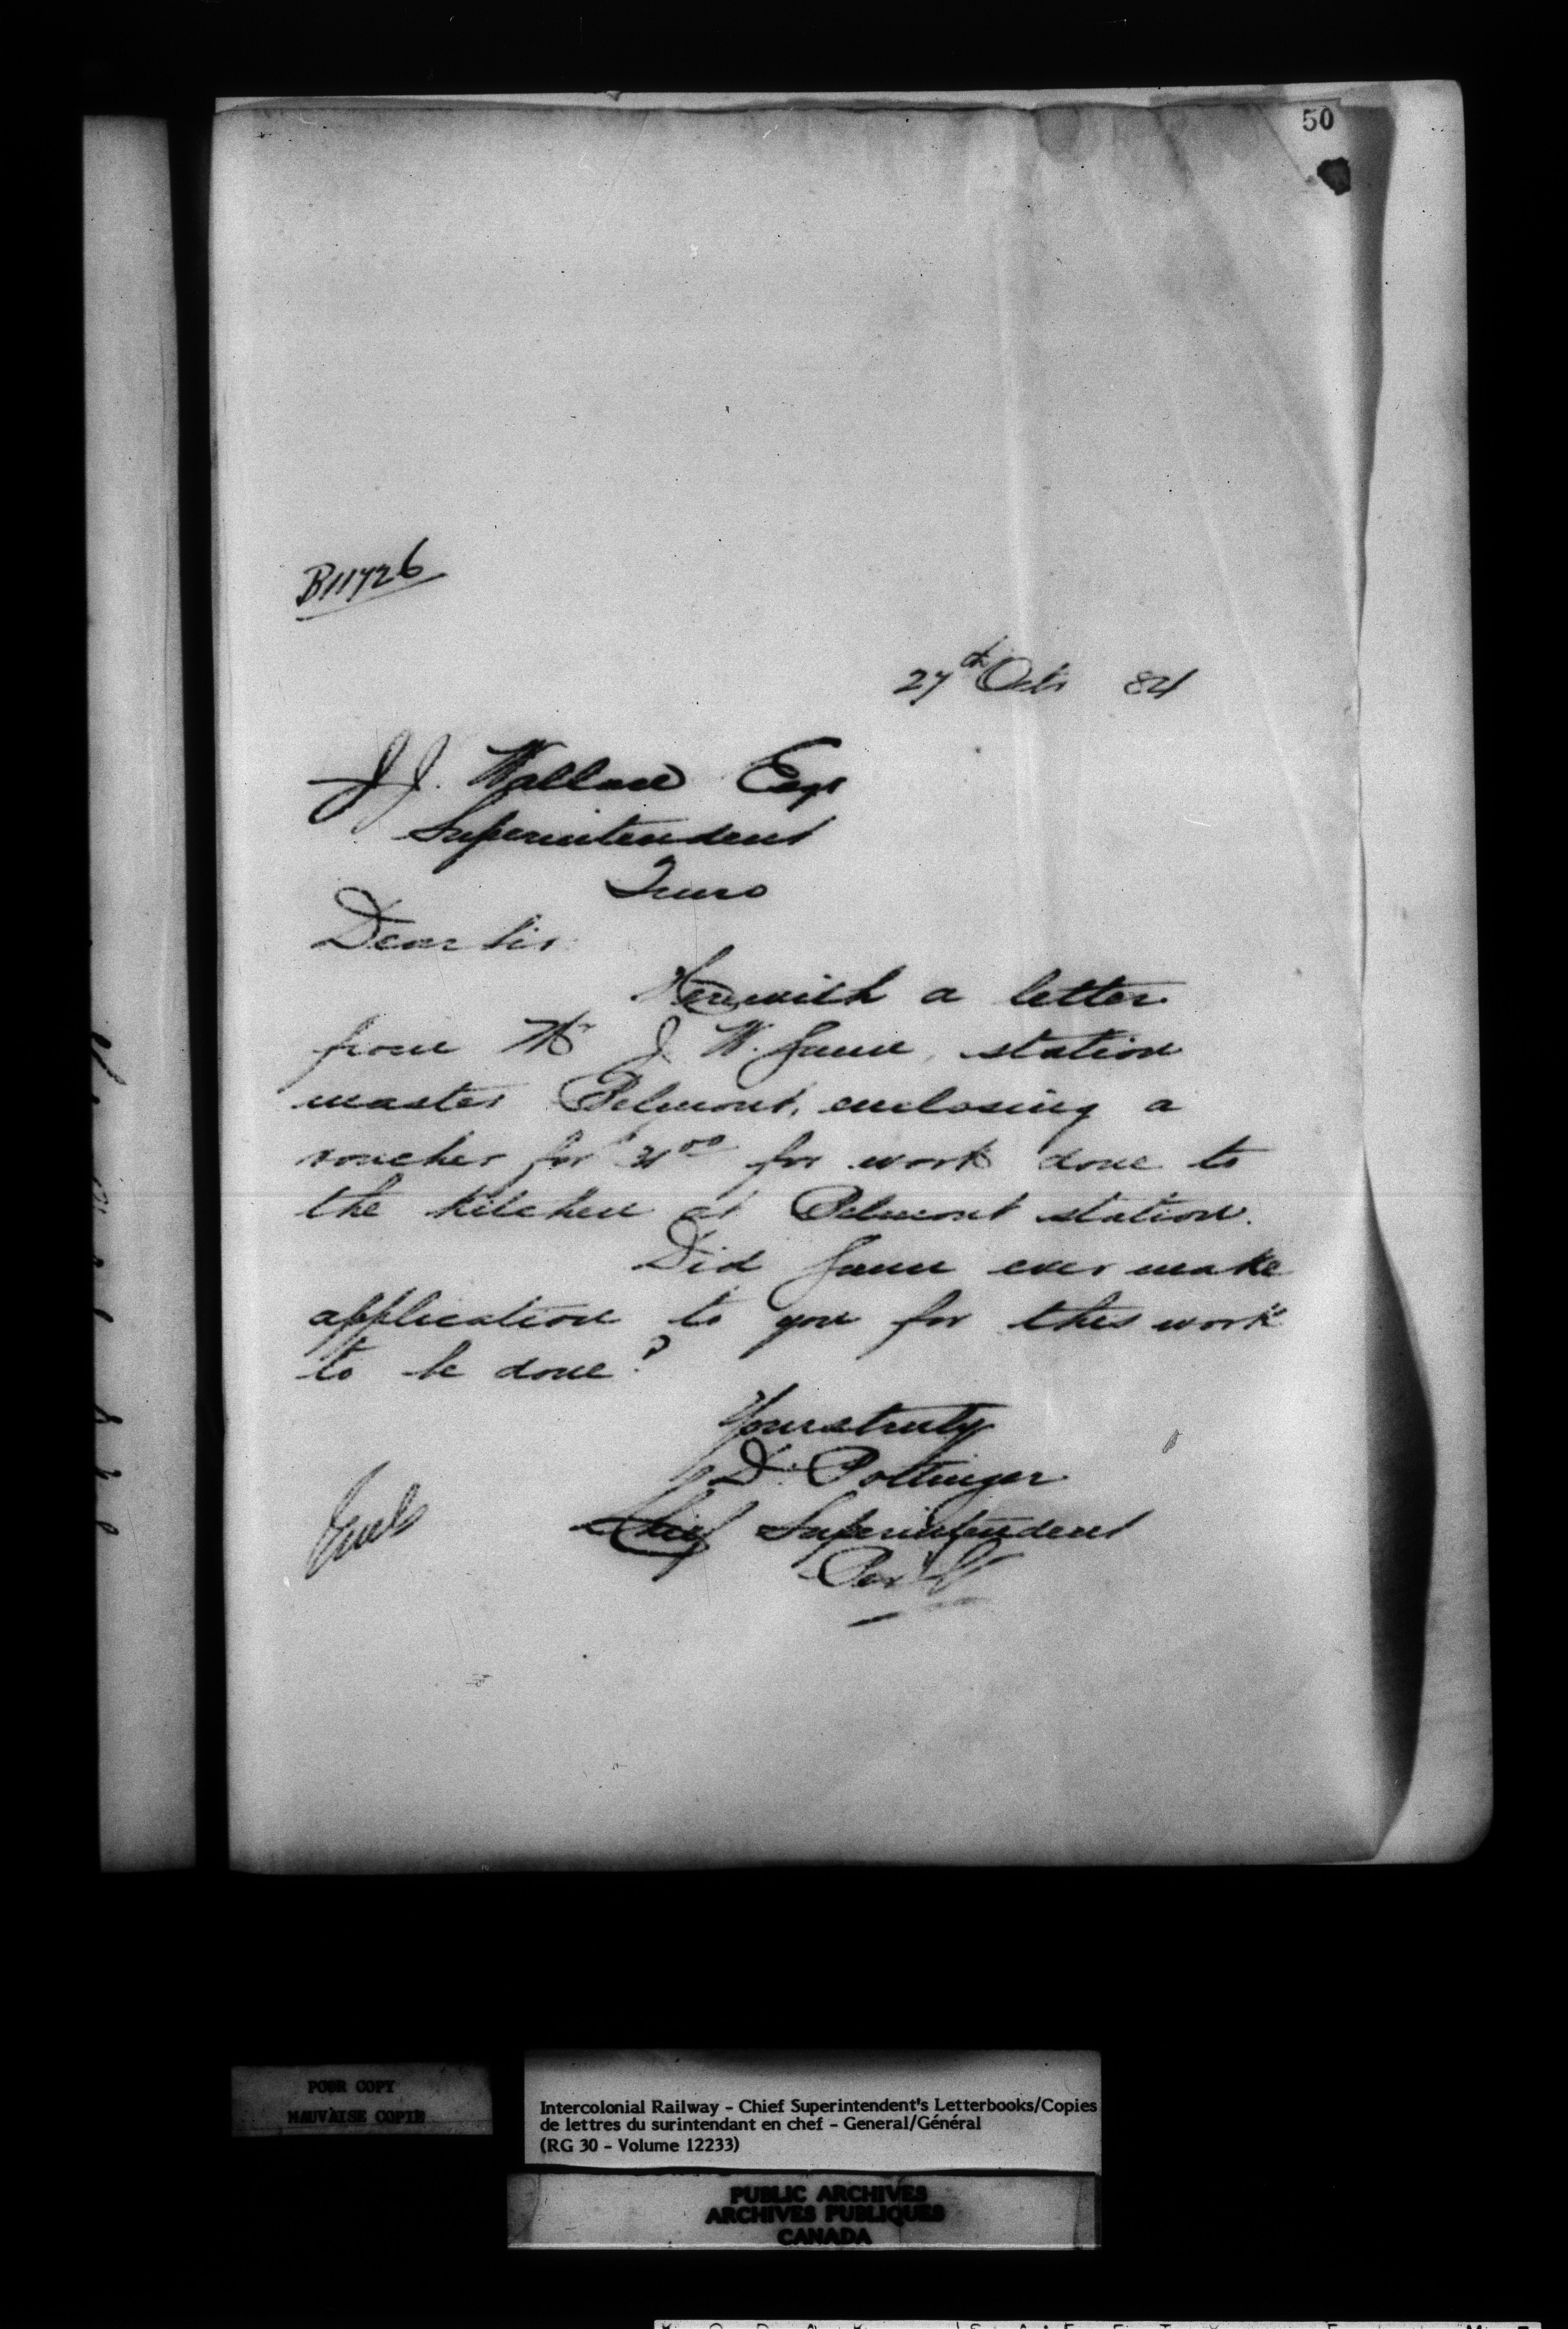 50
B11726
27th Octr 84
J. J. Wallace Esqr
Superintendent
Truro
Dear Sir
Herewith a letter
from Mr J. W. station
master Belmont, enclosing a
voucher for for work done to
the kitchen at Belmont station.
Did ever make
application to you for this work
to be done?
Yours truly
D. Pottinger
Chief Superintendent
Per
Encls
POOR COPY
MAUVAISE COPIE
Intercolonial Railway - Chief Superintendent's Letterbooks/Copies
de lettres du surintendant en chef - General/Général
(RG 30 - Volume 12233)
PUBLIC ARCHIVES
ARCHIVES PUBLIQUES
CANADA